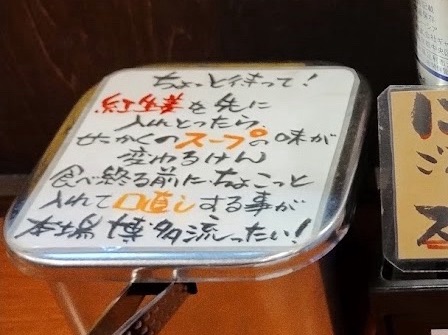 ちょっと待って!
紅生姜を先に
入れとったら、
せっかくのスープの味が
変わるけん
食べ終る前にちょこっと
入れて口直しする事が
本場博多流ったい!
に
ご
ス